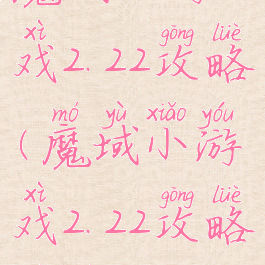 xì gōng lüè
戏2.22攻略
mó yù xiǎo yóu
(魔域小游
xì gōng lüè
戏2.22攻略